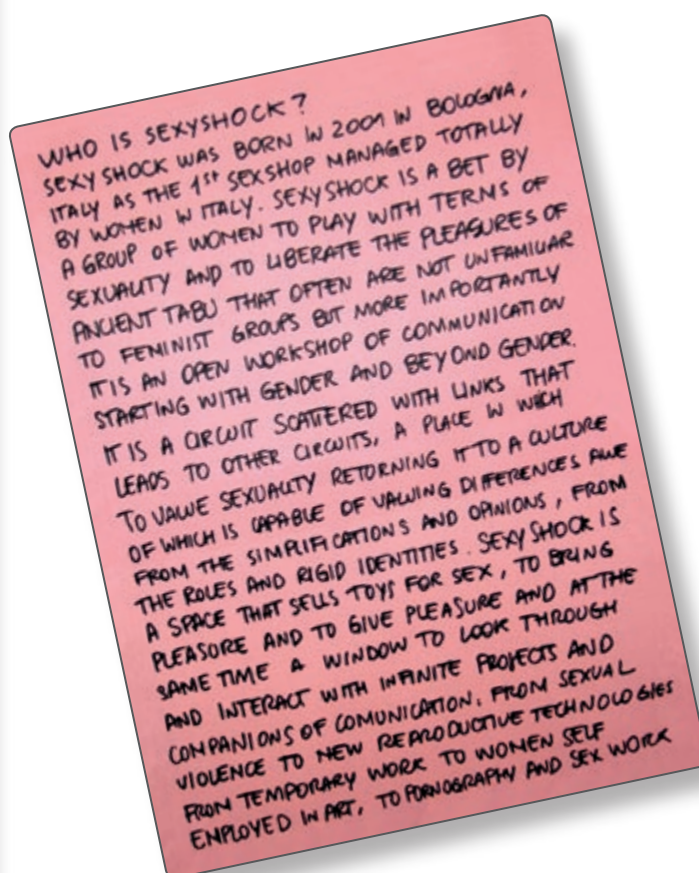 WHO IS SEXYSHOCK?
SEXY SHOCK WAS BORN IN 2001 IN BOLOGNA,
ITALY AS THE 1st SEXSHOP MANAGED TOTALLY
BY WOMEN IN ITALY. SEXYSHOCK IS A BET BY
A GROUP OF WOMEN TO PLAY WITH TERMS OF
SEXUALITY AND TO LIBERATE THE PLEASURES OF
ANCIENT TABU THAT OFTEN ARE NOT UNFAMILIAR
TO FEMINIST GROUPS BUT MORE IMPORTANTLY
IT IS AN OPEN WORKSHOP OF COMMUNICATION
STARTING WITH GENDER AND BEYOND GENDER.
IT IS A CIRCUIT SCATTERED WITH LINKS THAT
LEADS TO OTHER CIRCUITS, A PLACE IN WHICH
TO VALUE SEXUALITY RETORNING IT TO A CULTURE
OF WHICH IS CAPABLE OF VALUING DIFFERENCES AWE
FROM THE SIMPLIFICATIONS AND OPINIONS, FROM
THE ROLES AND RIGID IDENTITIES. SEXY SHOCK IS
A SPACE THAT SELLS TOYS FOR SEX, TO BRING
PLEASORE AND TO GIVE PLEASURE AND AT THE
SAME TIME A WINDOW TO LOOK THROUGH
AND INTERACT WITH INFINITE PROJECTS AND
COMPANIONS OF COMUNICATION. FROM SEXUAL
VIOLENCE TO NEW REPRODUCTIVE TECHNOLOGIES
FROM TEMPORARY WORK TO WOMEN SELF
ENPLOYED IN ART, TO PORNOGRAPHY AND SEX WORK